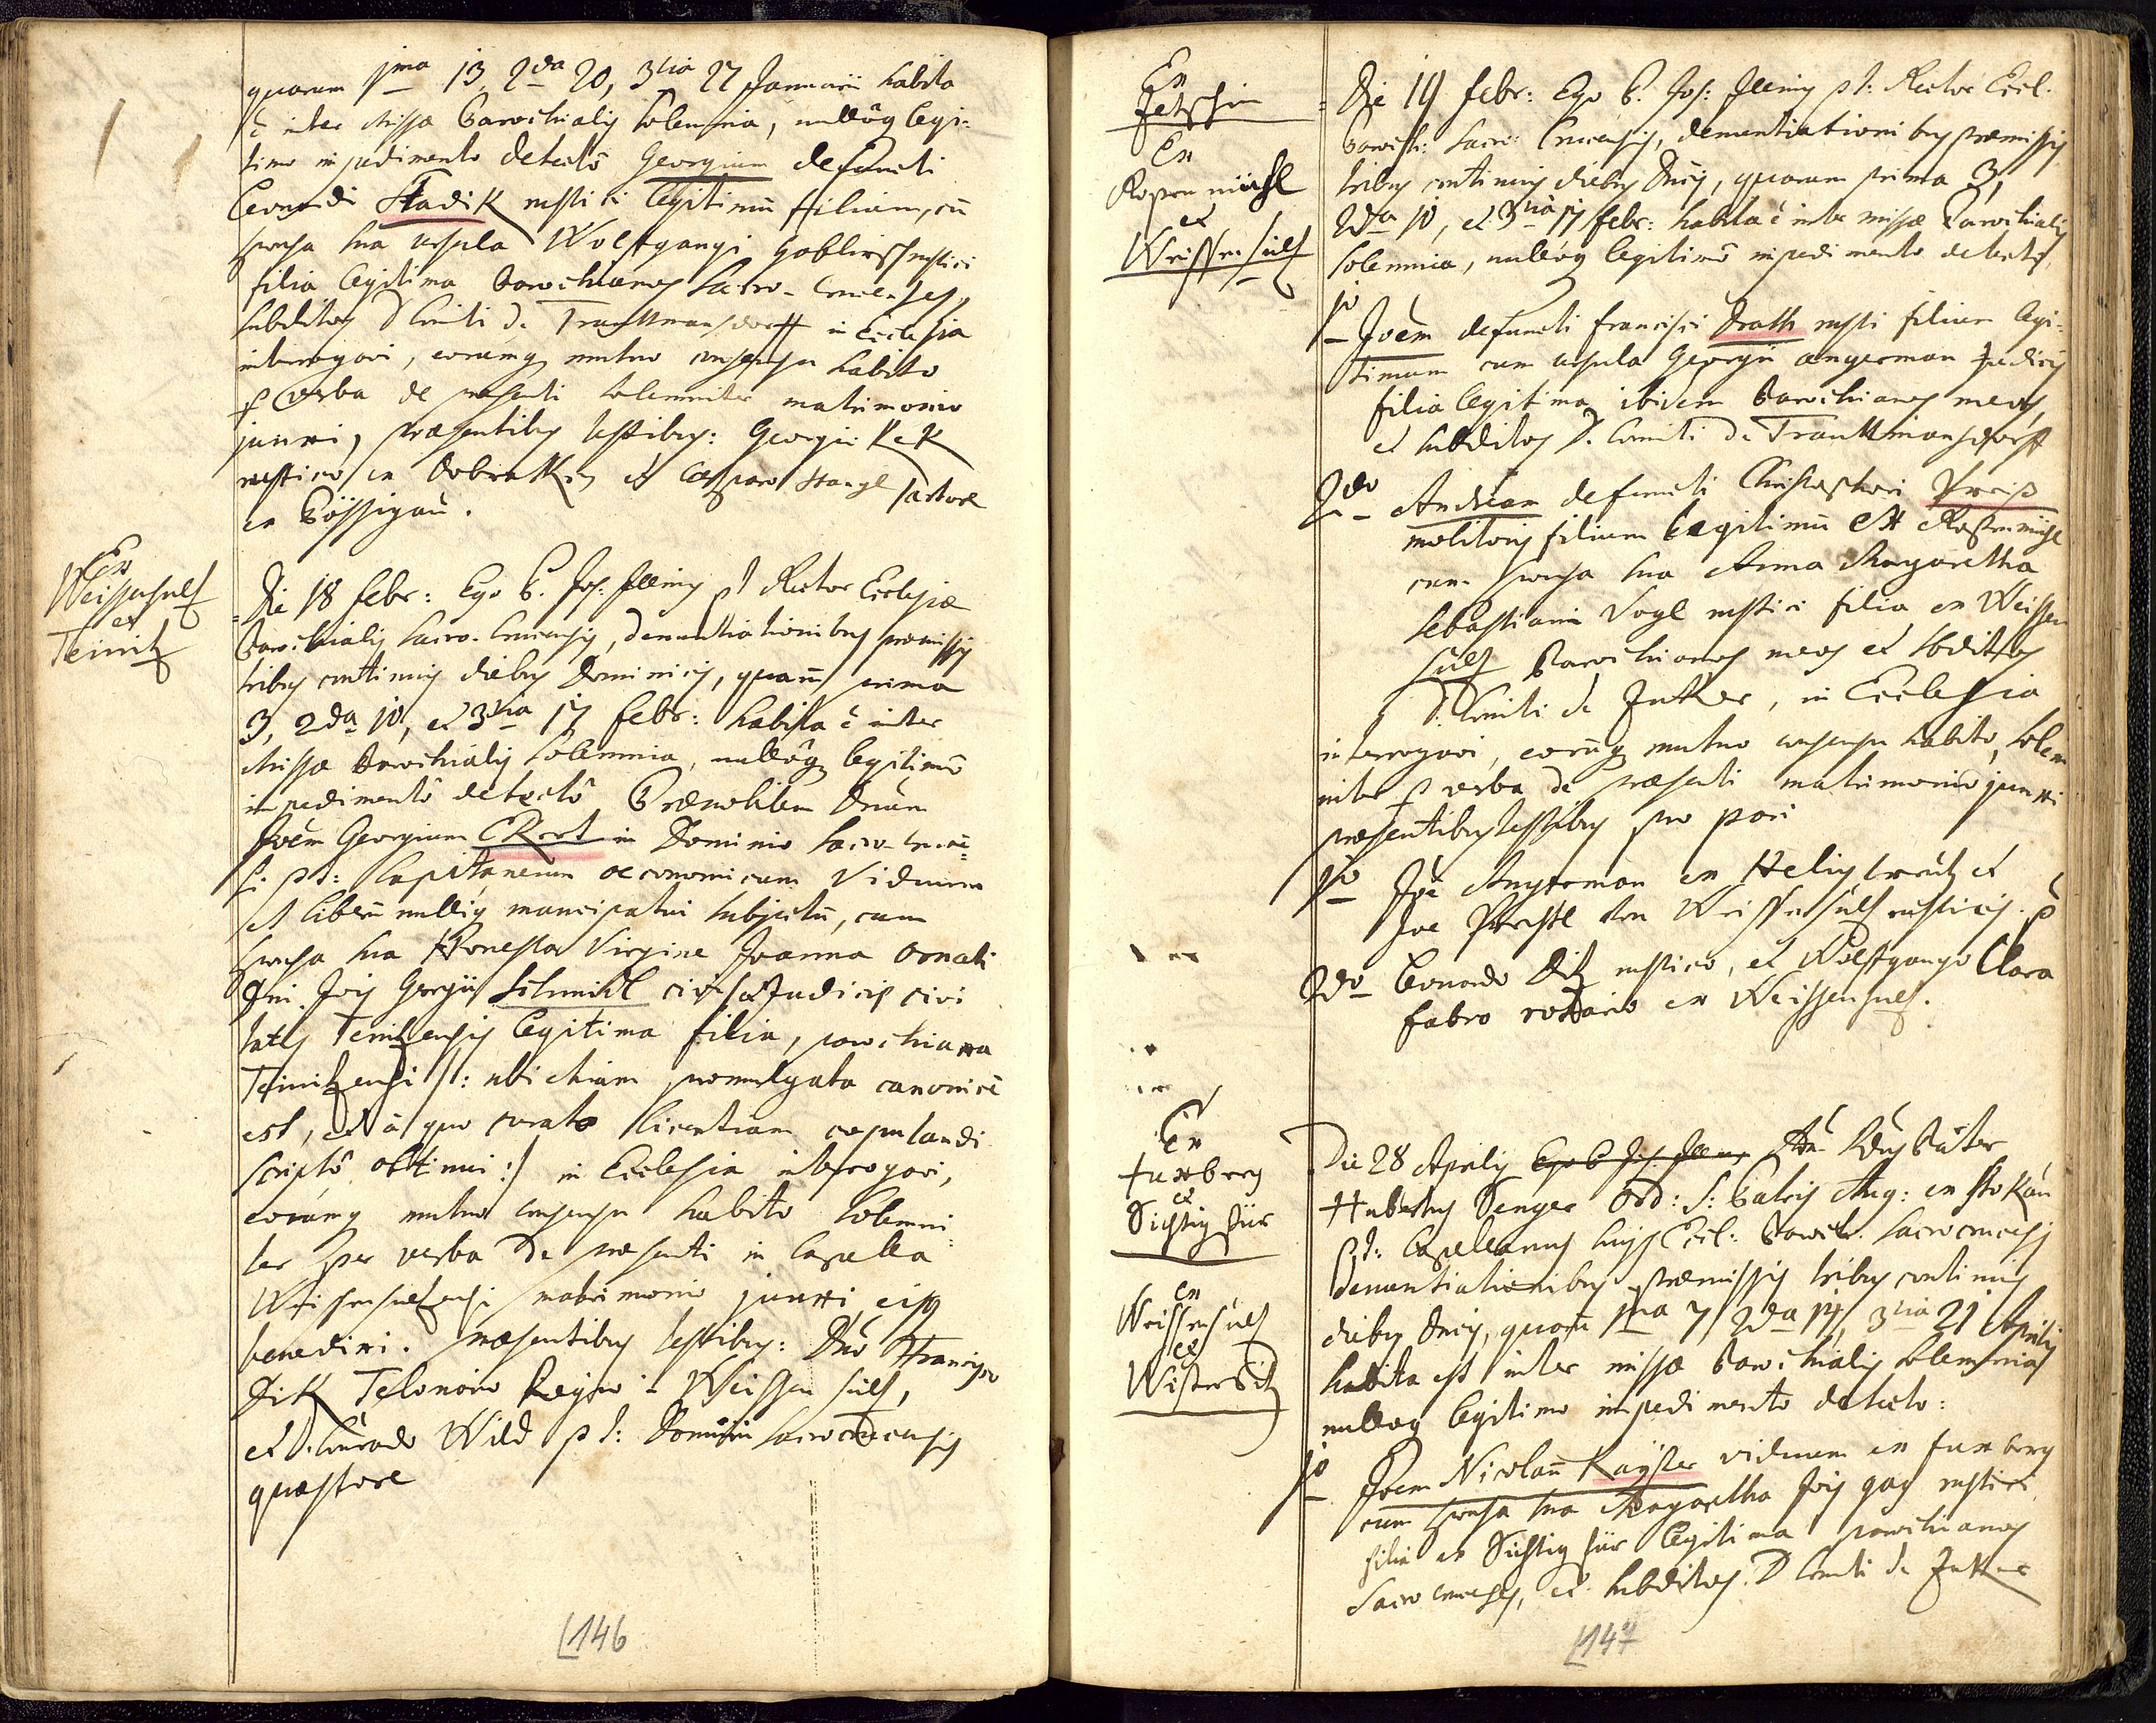 quarum 1ma 13, 2da 20, 3tia 27 Januarii habita
ē inter Missæ Parochialis solemnia, nullôq legi-
timo impedimento detectô Georgium defuncti
Leonardi Stadik rustici legitimū filium, cū
sponsa sua Ursula Wolfgangi Goblirsch rustici
filia legitima Parochianos Sacro-Crucenses,
subditos D. Comiti de Trauttmansdorff in Ecclesia
interrogavi, eorumq mutuo consensu habito
p verba de præsenti solemniter matrimonio
junxi, præsentibus testibus: Georgio Kek
rustico ex Dobratken et Casparo Stangl sartore
ex Pössigaü.
Ex
Weissensulz
et
Teinitz
Die 18 febr: Ego P. Jos: Illing p.t. Rector Ecclesiæ
Parochialis Sacro-Crucensis, denuntiationibus præmissis
tribus continuis diebus Dominicis, quarū prima
3, 2da 10, et 3tia 17 febr: habita ē inter
Missæ Parochialis solemnia, nullôq legitimô
impedimentô detectô Prænobilem Dnum
Joēm Georgium Ekert in Dominio Sacro-Cruce-
si p.t: Capitaneum oeconomicum Viduum
et liberū nulliq mancipatui subjectū, cum
sponsa sua Honesta Virgine Joanna Ornati
Dni Jois Georgii Schmidl civis et Judicis civi
tatis Teinitzensis legitima filia, parochiana
Teinitzensi /: ubi etiam promulgata canonicè
est, et à quo curato licentiam copulandi
scriptô obtinui :/ in Ecclesia interrogavi,
eorumq mutuo consensu habito solemni-
ter per verba de præsenti in Capella
Weissensulzensi matrimonio junxi eisq
benedixi. Præsentibus testibus: Dno Francisco
Dik Telonario Regio in Weissensulz,
et D. Conrado Wild p.t: Dominii Sacrocrucensis
quæstore
146
Ex
Zetschin
Ex
Rossenmühl
et
Weissensulz
Die 19 febr: Ego P. Jos: Illing p.t: Rector Eccl.
Paroch: Sacro: Crucensis, denuntiationibus præmissis
tribus continuis diebus Dnicis, quarum prima 3,
2da 10, et 3tia 17 febr: habita ē inter missæ Parochialis
solemnia, nullôq legitimô impedimento detecto,
1o Joēm defuncti Francisci Drath rustici filium legi-
timum cum Ursula Georgii Angerman Judicis
filia legitima ibidem Parochianos meos,
et subditos D. Comiti de Trauttmansdorff
2do Andream defuncti Christophori Preis
molitoris filium legitimū ex Rossenmühl
cum sponsa sua Anna Margaretha
Sebastiani Vogl rustici filia ex Weissen
sulz Parochianos meos et subditos
D. Comiti de Zukker, in Ecclesia
interrogavi, eorūq mutuo consensu habito, solem
niter p verba de præsenti matrimonio junxi
præsentibus testibus pro pari
1o Joē Angerman ex Heligkreutz et
Joe ex Weissensulz rusticis. p
2do Leonardo Ditz rustico, et Wolfgango Clara
fabro rotario ex Weissensulz.
Ex
Fuxberg
et
Sichtigfür
ex
Weissensulz
et
Wisterschitz
Die 28 Aprilis Ego P. Jos. Illing Adm Rdus Pater
Hubertus Senger Ord: S: Patris Aug: ex Stokau
p.t: Capellanus hujus Eccl: Paroch: Sacrocrucensis
Denuntiationibus præmissis tribus continuis
diebus Dnicis, quarū 1ma 7, 2da 14, 3tia 21 Aprilis
habita est inter missæ Parochialis solemnia
nulloq legitimo impedimento detecto:
1o Joem Nicolaū Kayser viduum ex Fuxberg
cum sponsa sua Margaretha Jois gas rustici
filia ex Sichtigfür legitima parochianos
Sacrocrucenses, et subditos D. Comiti de Zukker
147